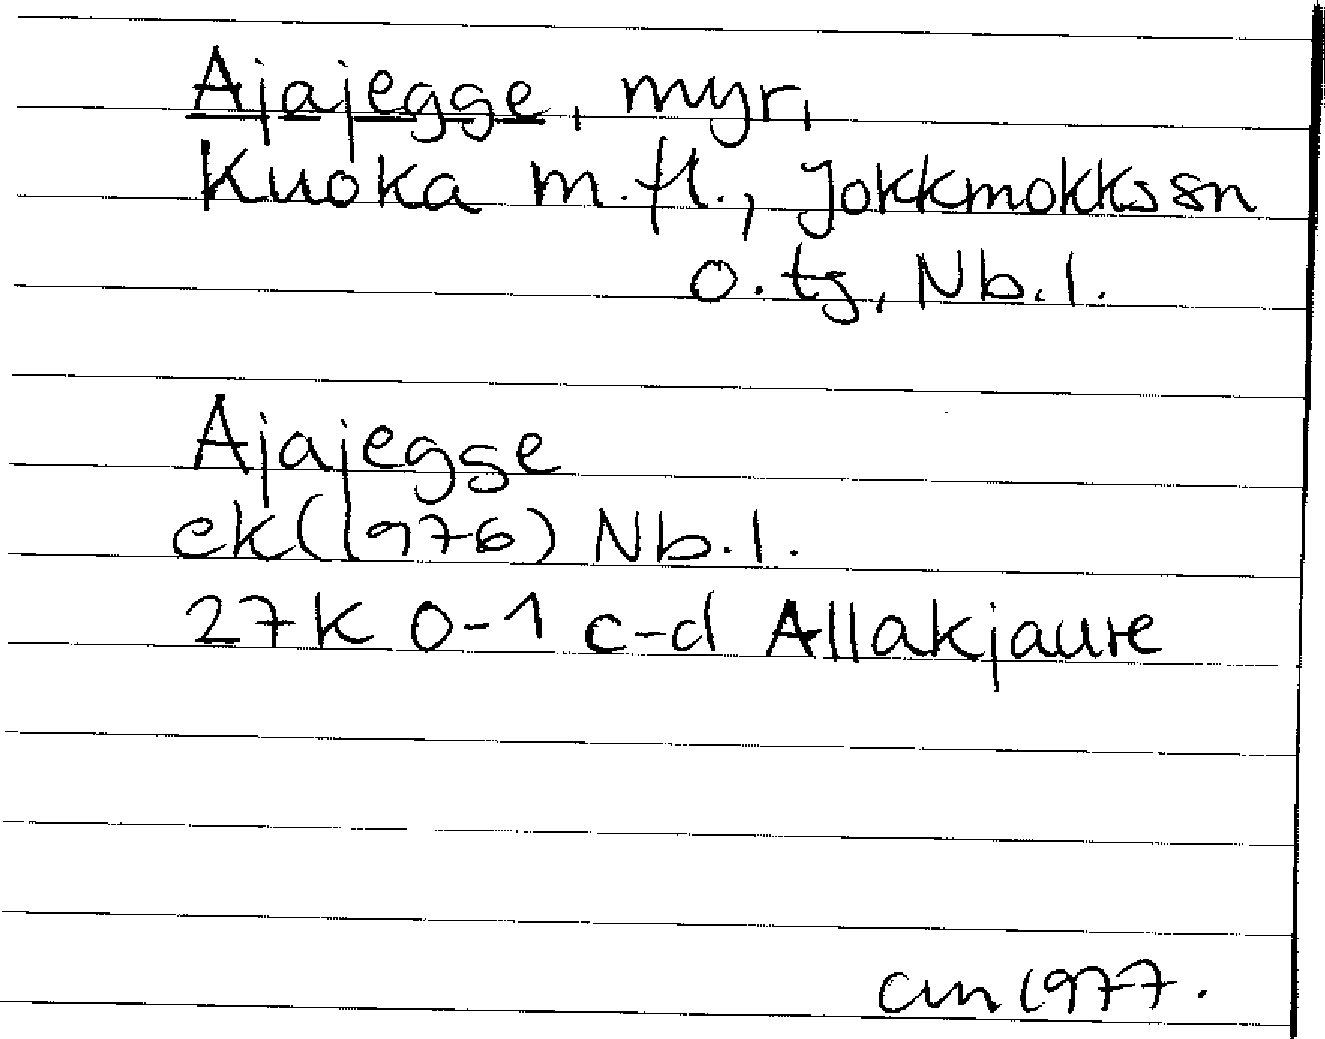 Ajajegge, myr,
Kuoka m.fl., Jokkmokks sn
o. tg, Nb.l.
Ajajegge
ek(1976) Nb.l.
27K 0-1 c-d Allakjaure
cm 1977.